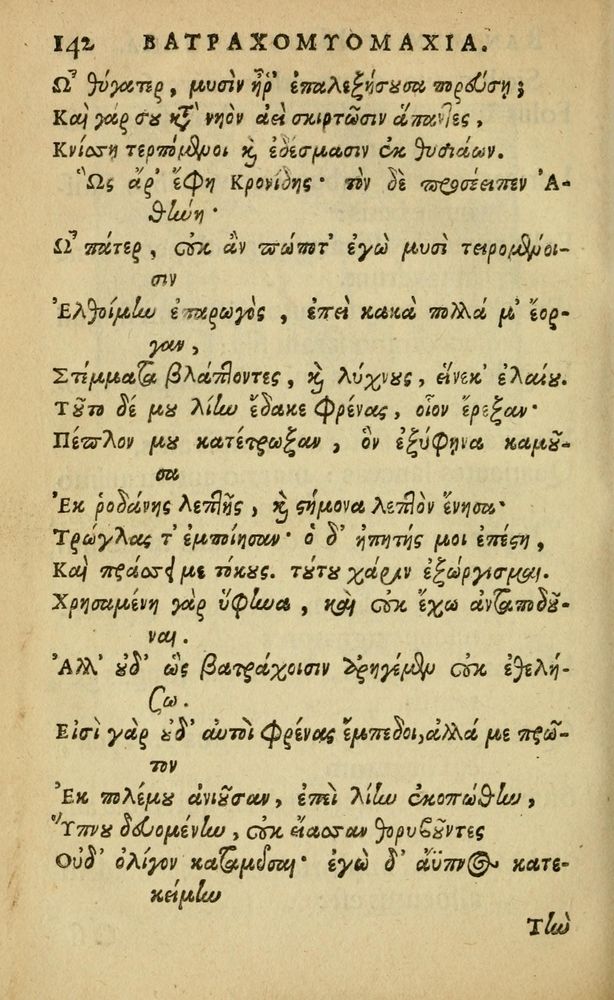 142 ΒΑΤΡΑΧΟΜΥΟΜΑΧΙΑ.
Ὦ θύγατερ, μυσὶν ἦρ' ἐπαλεξήσουσα πορεύσῃ;
Καὶ γάρ σου κατὰ νηὸν ἀεὶ σκιρτῶσιν ἅπαντες,
Κνίσσῃ τερπόμενοι καὶ ἐδέσμασιν ἐκ θυσιάων.
Ὣς ἄρ' ἔφη Κρονίδης· τὸν δὲ προσέειπεν Ἀ-
θήνη·
Ὦ πάτερ, οὐκ ἂν πώποτ' ἐγὼ μυσὶ τειρομένοι-
σιν
Ἐλθοίμην ἐπαρωγὸς, ἐπεὶ κακὰ πολλά μ' ἔορ-
γαν,
Στέμματα βλάπτοντες, καὶ λύχνους, εἵνεκ' ἐλαίου.
Τοῦτο δέ μου λίην ἔδακε φρένας, οἷον ἔρεξαν·
Πέπλον μου κατέτρωξαν, ὃν ἐξύφηνα καμοῦ-
σα
Ἐκ ῥοδάνης λεπτῆς, καὶ στήμονα λεπτὸν ἔνησα·
Τρώγλας τ' ἐμποίησαν· ὁ δ' ἠπητής μοι ἐπέστη,
Καὶ πράσσει με τόκους. τούτου χάριν ἐξώργισμαι.
Χρησαμένη γὰρ ὕφηνα, καὶ οὐκ ἔχω ἀνταποδοῦ-
ναι.
Ἀλλ' οὐδ' ὣς βατράχοισιν ἀρηγέμεν οὐκ ἐθελή-
σω.
Εἰσὶ γὰρ οὐδ' αὐτοὶ φρένας ἔμπεδοι, ἀλλά με πρῶ-
τον
Ἐκ πολέμου ἀνιοῦσαν, ἐπεὶ λίην ἐκοπώθην,
Ὕπνου δευομένην, οὐκ εἴασσαν θορυβοῦντες
Οὐδ' ὀλίγον καταμῦσαι· ἐγὼ δ' ἄϋπνος κατε-
κείμην
Τὴν